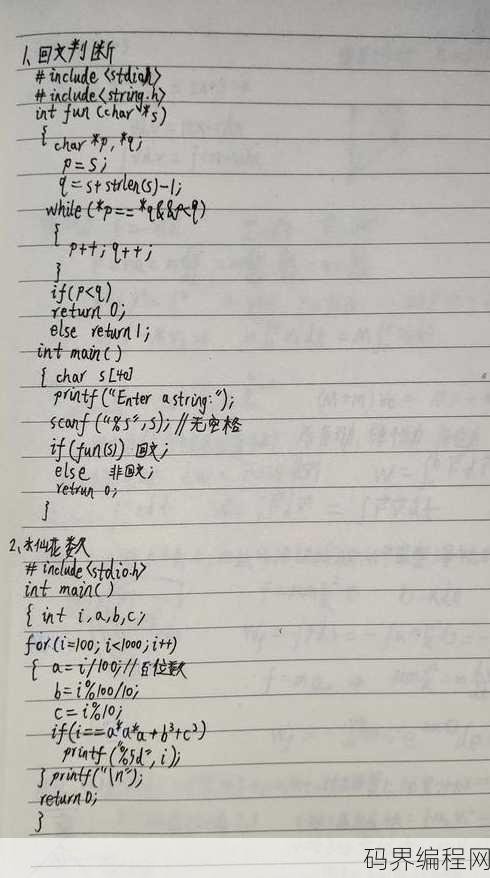 1、回文判断
#include <stdio.h>
#include <string.h>
int fun (char *s)
{ char *p, *q;
p=s;
q=s+strlen(s)-1;
while (*p==*q&&p<q)
{
p++; q++;
}
if(p<q)
return 0;
else return 1;
int main()
{ char s[40]
printf("Enter a string:");
scanf("%s",s); //无空格
if(fun(s)) 回文;
else 非回文;
retrun 0;
}
2、水仙花数
#include <stdio.h>
int main()
{ int i,a,b,c;
for(i=100; i<1000; i++)
{ a=i/100; //百位数
b=i%100/10;
c=i%10;
if(i==a*a*a+b³+c³)
printf("%5d", i);
} printf("\n");
return 0;
}
码界编程网